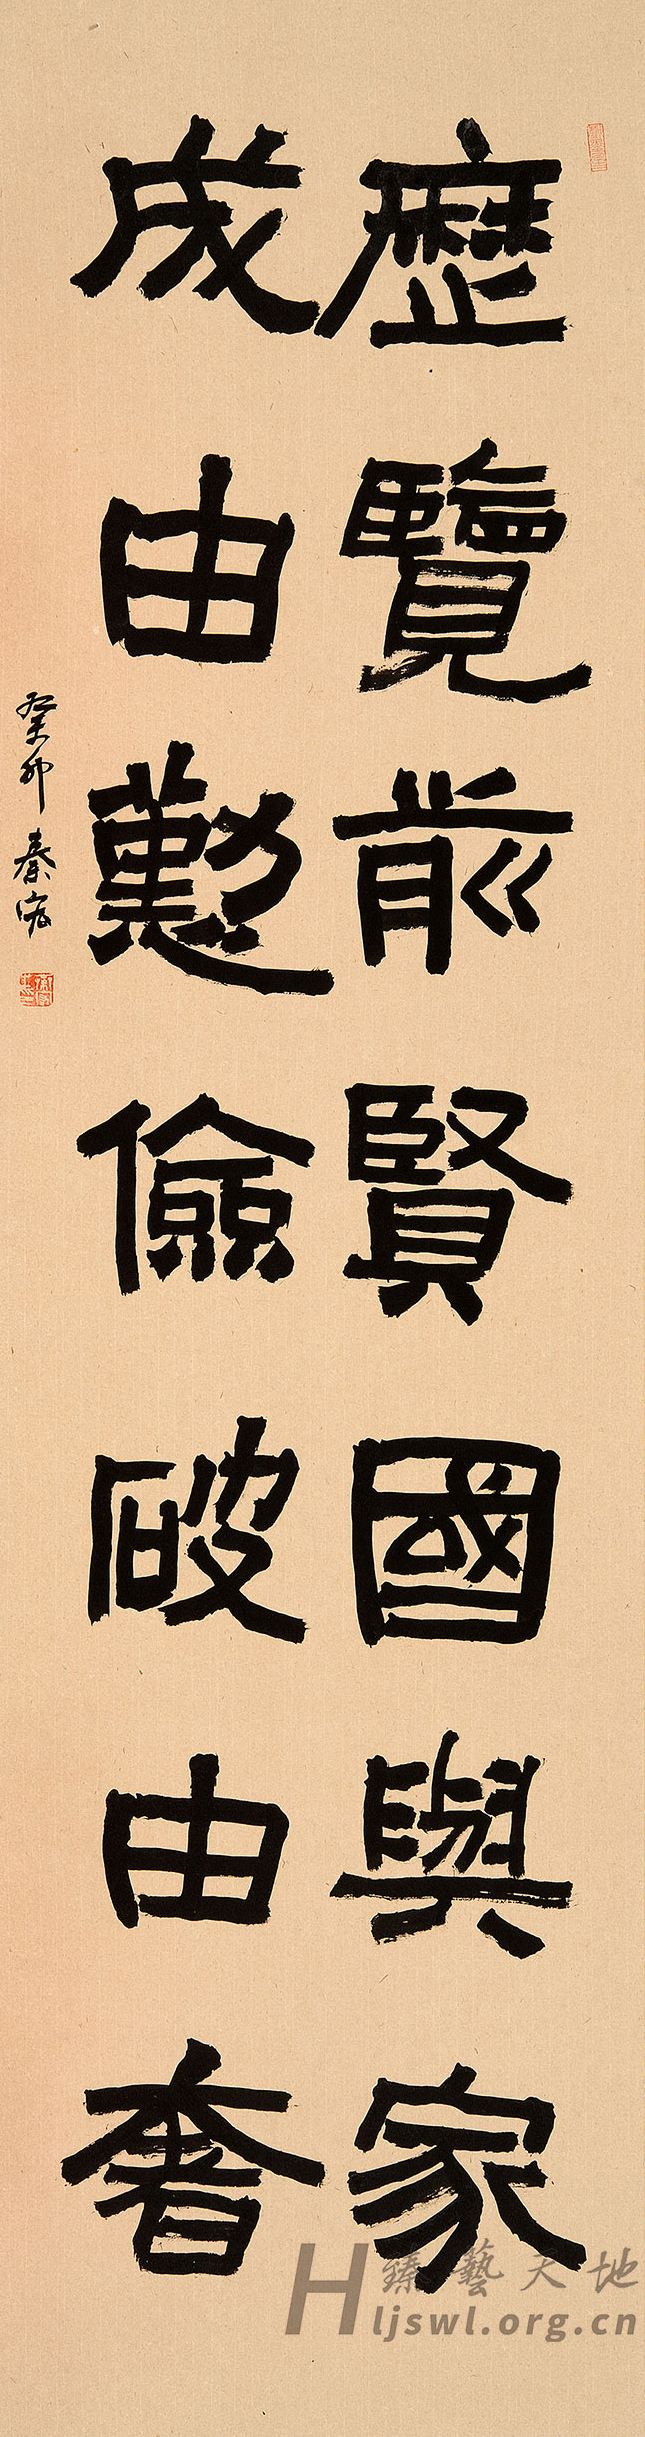 歷覽前賢國與家
成由懃儉破由奢
癸卯 秦宏
臻藝天地
Hljswl.org.cn